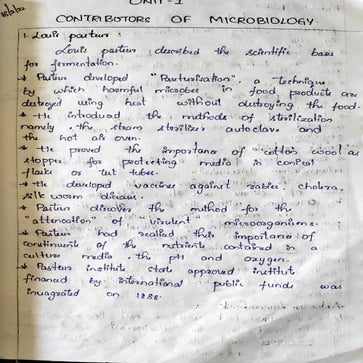 UNIT-1
CONTRIBUTORS OF MICROBIOLOGY
1. Louis pasteur :
Louis pasteur described the scientific base
for fermentation.
* Pasteur developed "Pasturisation", a technique
by which harmful microbes in food products are
destroyed using heat without destroying the food.
* He introduced the methods of sterilization
namely, the steam steriliser autoclave and
the hot air oven.
* He proved the importance of cotton wool as
stopper for protecting media in conical
flasks or test tubes.
* He developed vaccines against rabies, cholera,
silk worm disease.
* Pasteur discover the method for the
"attenuation" of "virulent" microorganisms.
* Pasteur had realised the importance of
constituents of the nutrients contained in a
culture media, the pH and oxygen.
* Pasteur institute state approved institut
financed by international public funds was
on 1888.